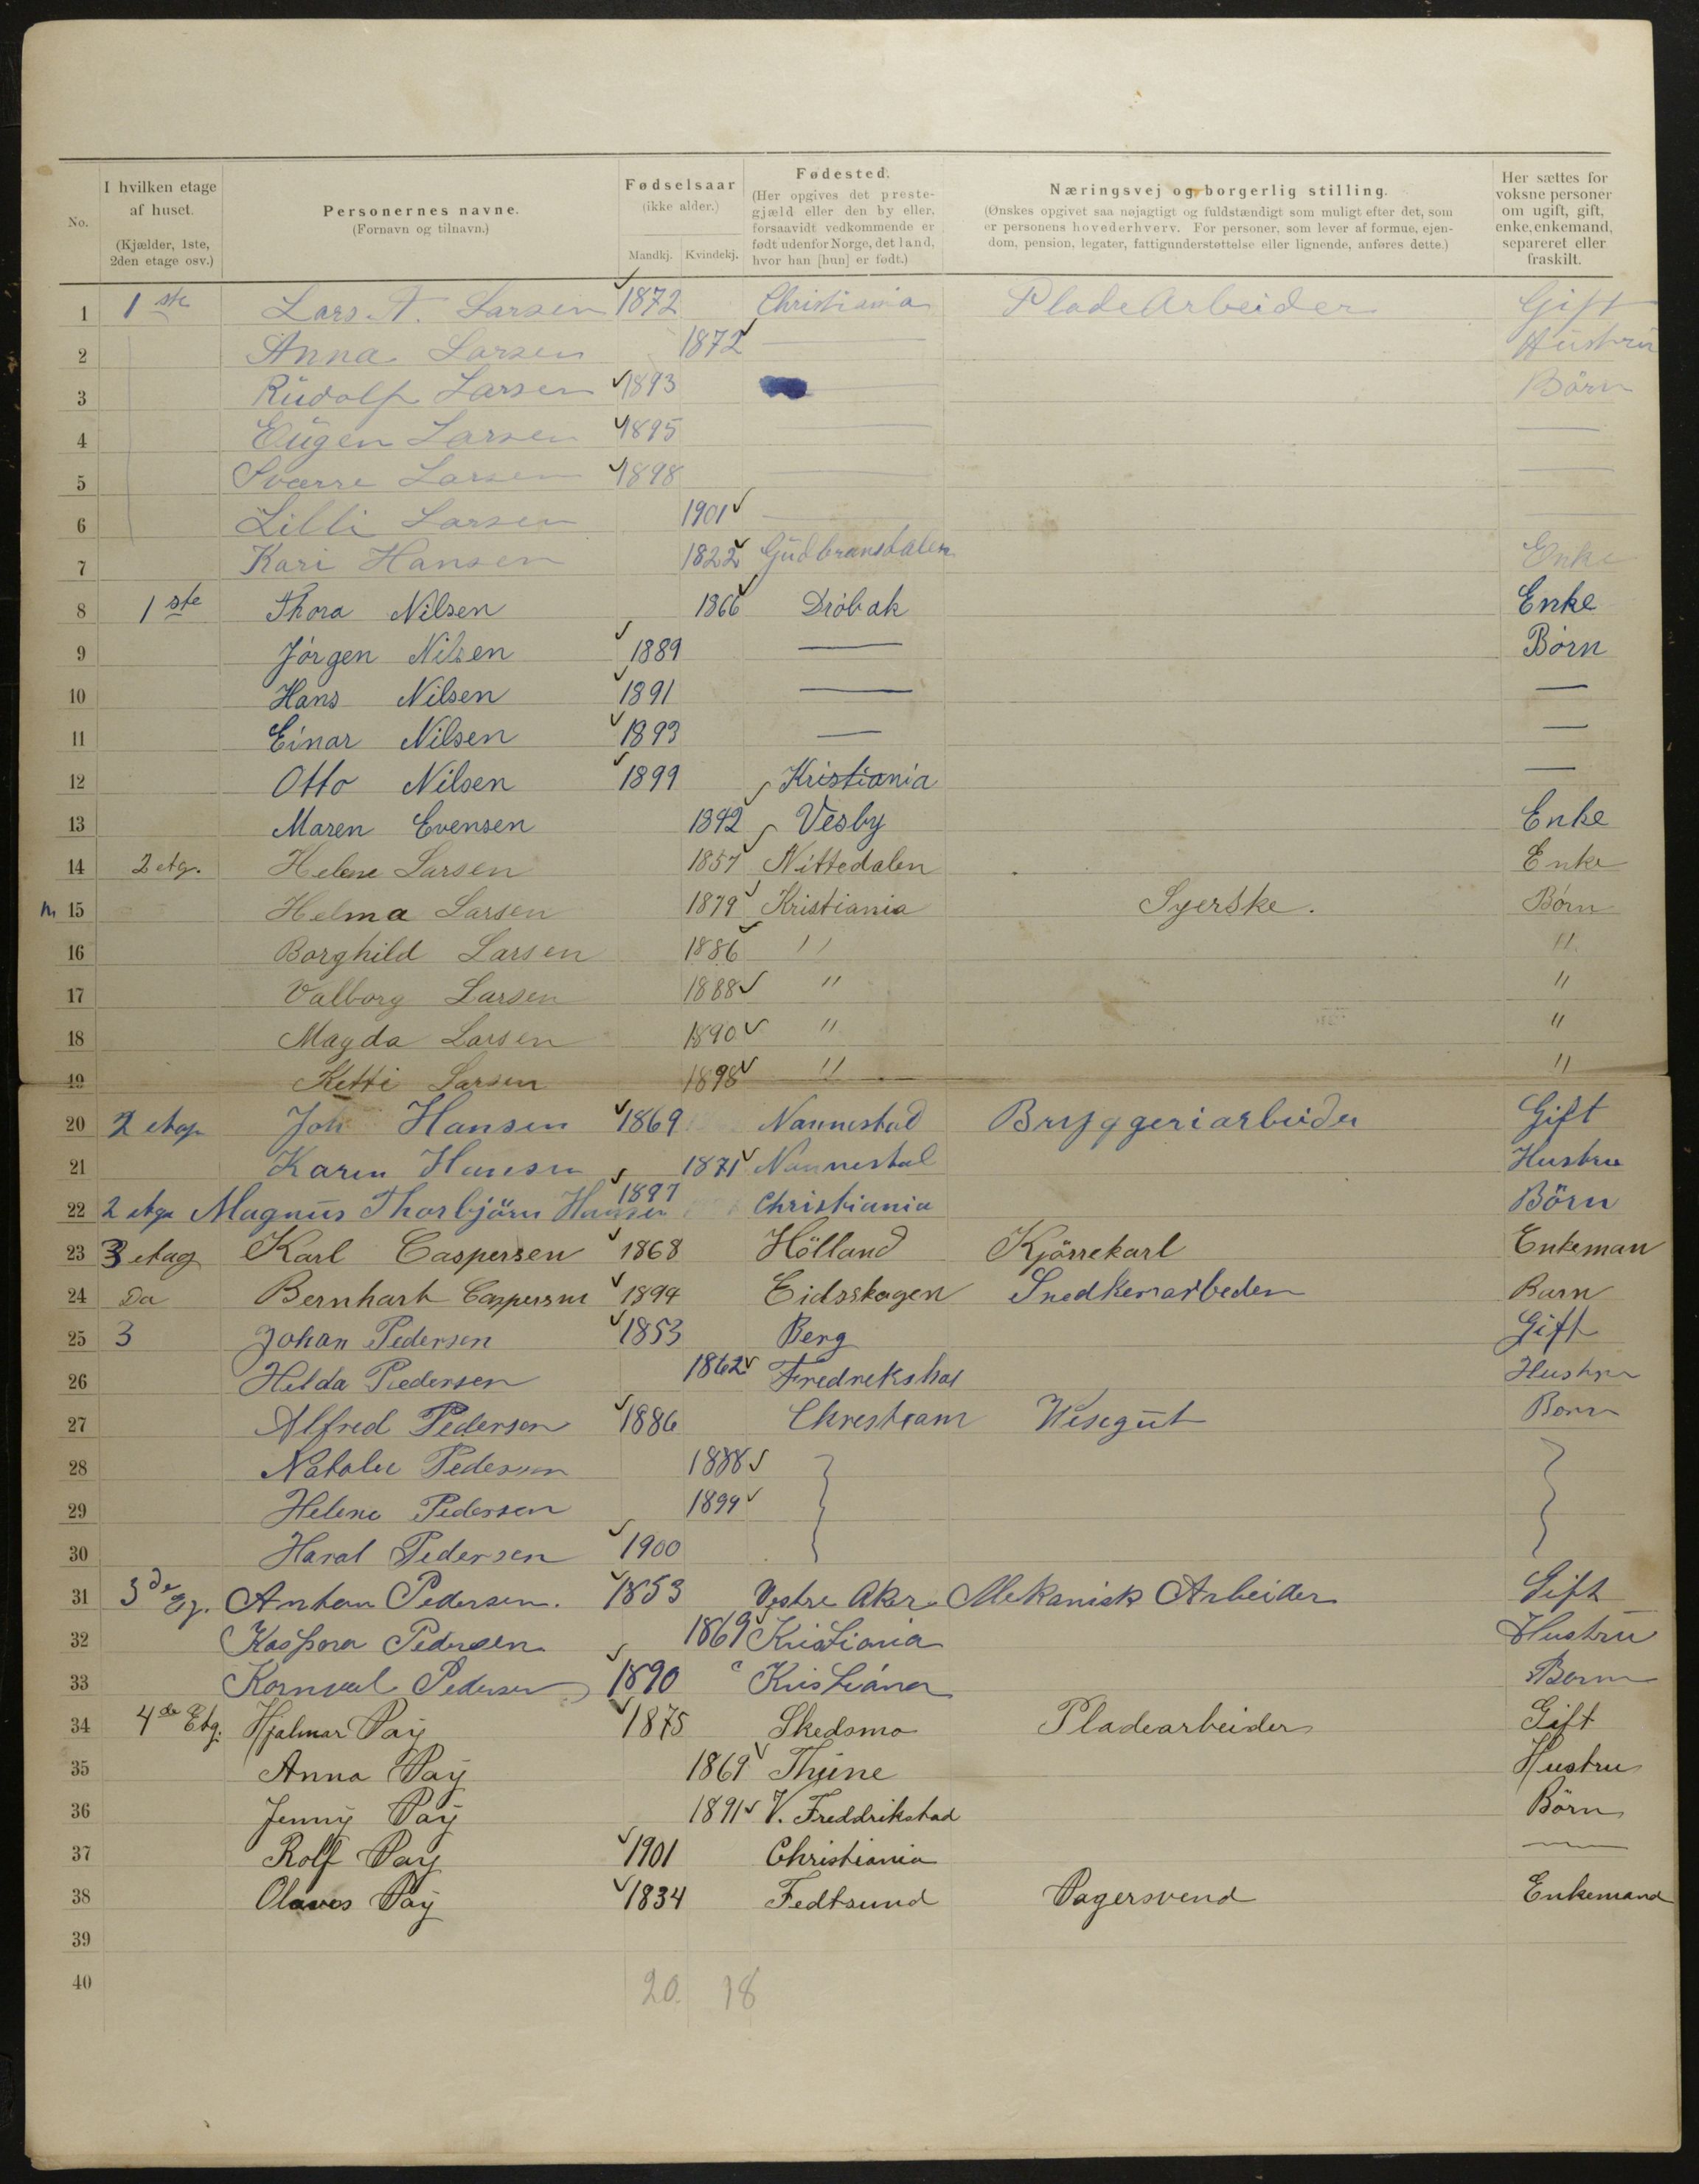 No.
I hvilken etage af huset. (Kjælder, 1ste, 2den etage osv.)
Personernes navne. (Fornavn og tilnavn.)
Fødselsaar (ikke alder.) Mandkj. Kvindekj.
Fødested. (Her opgives det prestegjæld eller den by eller, forsaavidt vedkommende er født udenfor Norge, det land, hvor han [hun] er født.)
Næringsvej og borgerlig stilling. (Ønskes opgivet saa nøjagtigt og fuldstændigt som muligt efter det, som er personens hovederhverv. For personer, som lever af formue, ejendom, pension, legater, fattigunderstøttelse eller lignende, anføres dette.)
Her sættes for voksne personer om ugift, gift, enke, enkemand, separeret eller fraskilt.
1 1ste Lars A. Larsen 1872 Christiania PladeArbeider Gift
2 Anna Larsen 1872 — Hustru
3 Rudolf Larsen 1893 — Börn
4 Eugen Larsen 1895 — —
5 Sværre Larsen 1898 — —
6 Lilli Larsen 1901 — —
7 Kari Hansen 1822 Gudbransdalen Enke
8 1ste Thora Nilsen 1866 Dröbak Enke
9 Jörgen Nilsen 1889 — Börn
10 Hans Nilsen 1891 — —
11 Einar Nilsen 1893 — —
12 Otto Nilsen 1899 Kristiania —
13 Maren Evensen 1842 Vesby Enke
14 2 etg. Helene Larsen 1857 Nittedalen Enke
15 Helma Larsen 1879 Kristiania Syerske. Börn
16 Borghild Larsen 1886 " "
17 Valborg Larsen 1888 " "
18 Magda Larsen 1890 " "
19 Ketti Larsen 1898 " "
20 2 etag Joh Hansen 1869 Nannestad Bryggeriarbeider Gift
21 Karen Hansen 1871 Nannestad Hustru
22 2 etge Magnus Thorbjörn Hansen 1897 Christiania Börn
23 3 etag Karl Caspersen 1868 Hölland Kjörrekarl Enkeman
24 Do Bernhart Caspersen 1894 Eidsskogen Snedkerarbeder Barn
25 3 Johan Pedersen 1853 Berg Gift
26 Helda Pedersen 1862 Fredrekshal Hustru
27 Alfred Pedersen 1886 Chrestiam Visegut Born
28 Natalie Pedersen 1888
29 Helene Pedersen 1899
30 Haral Pedersen 1900
31 3de Eg. Anton Pedersen. 1853 Vestre Aker Mekanisk Arbeider Gift
32 Kaspora Pedersen 1869 Kristiania Hustru
33 Pedersen 1890 Kristiána Born
34 4de Etg. Hjalmar Pay 1875 Skedsmo Pladearbeider Gift
35 Anna Pay 1869 Thune Hustru
36 Jenny Pay 1891 V. Freddrikstad Börn
37 Rolf Pay 1901 Christiania —
38 Olaves Pay 1834 Fedtsund Pagersvend Enkemand
39
40
20. 18